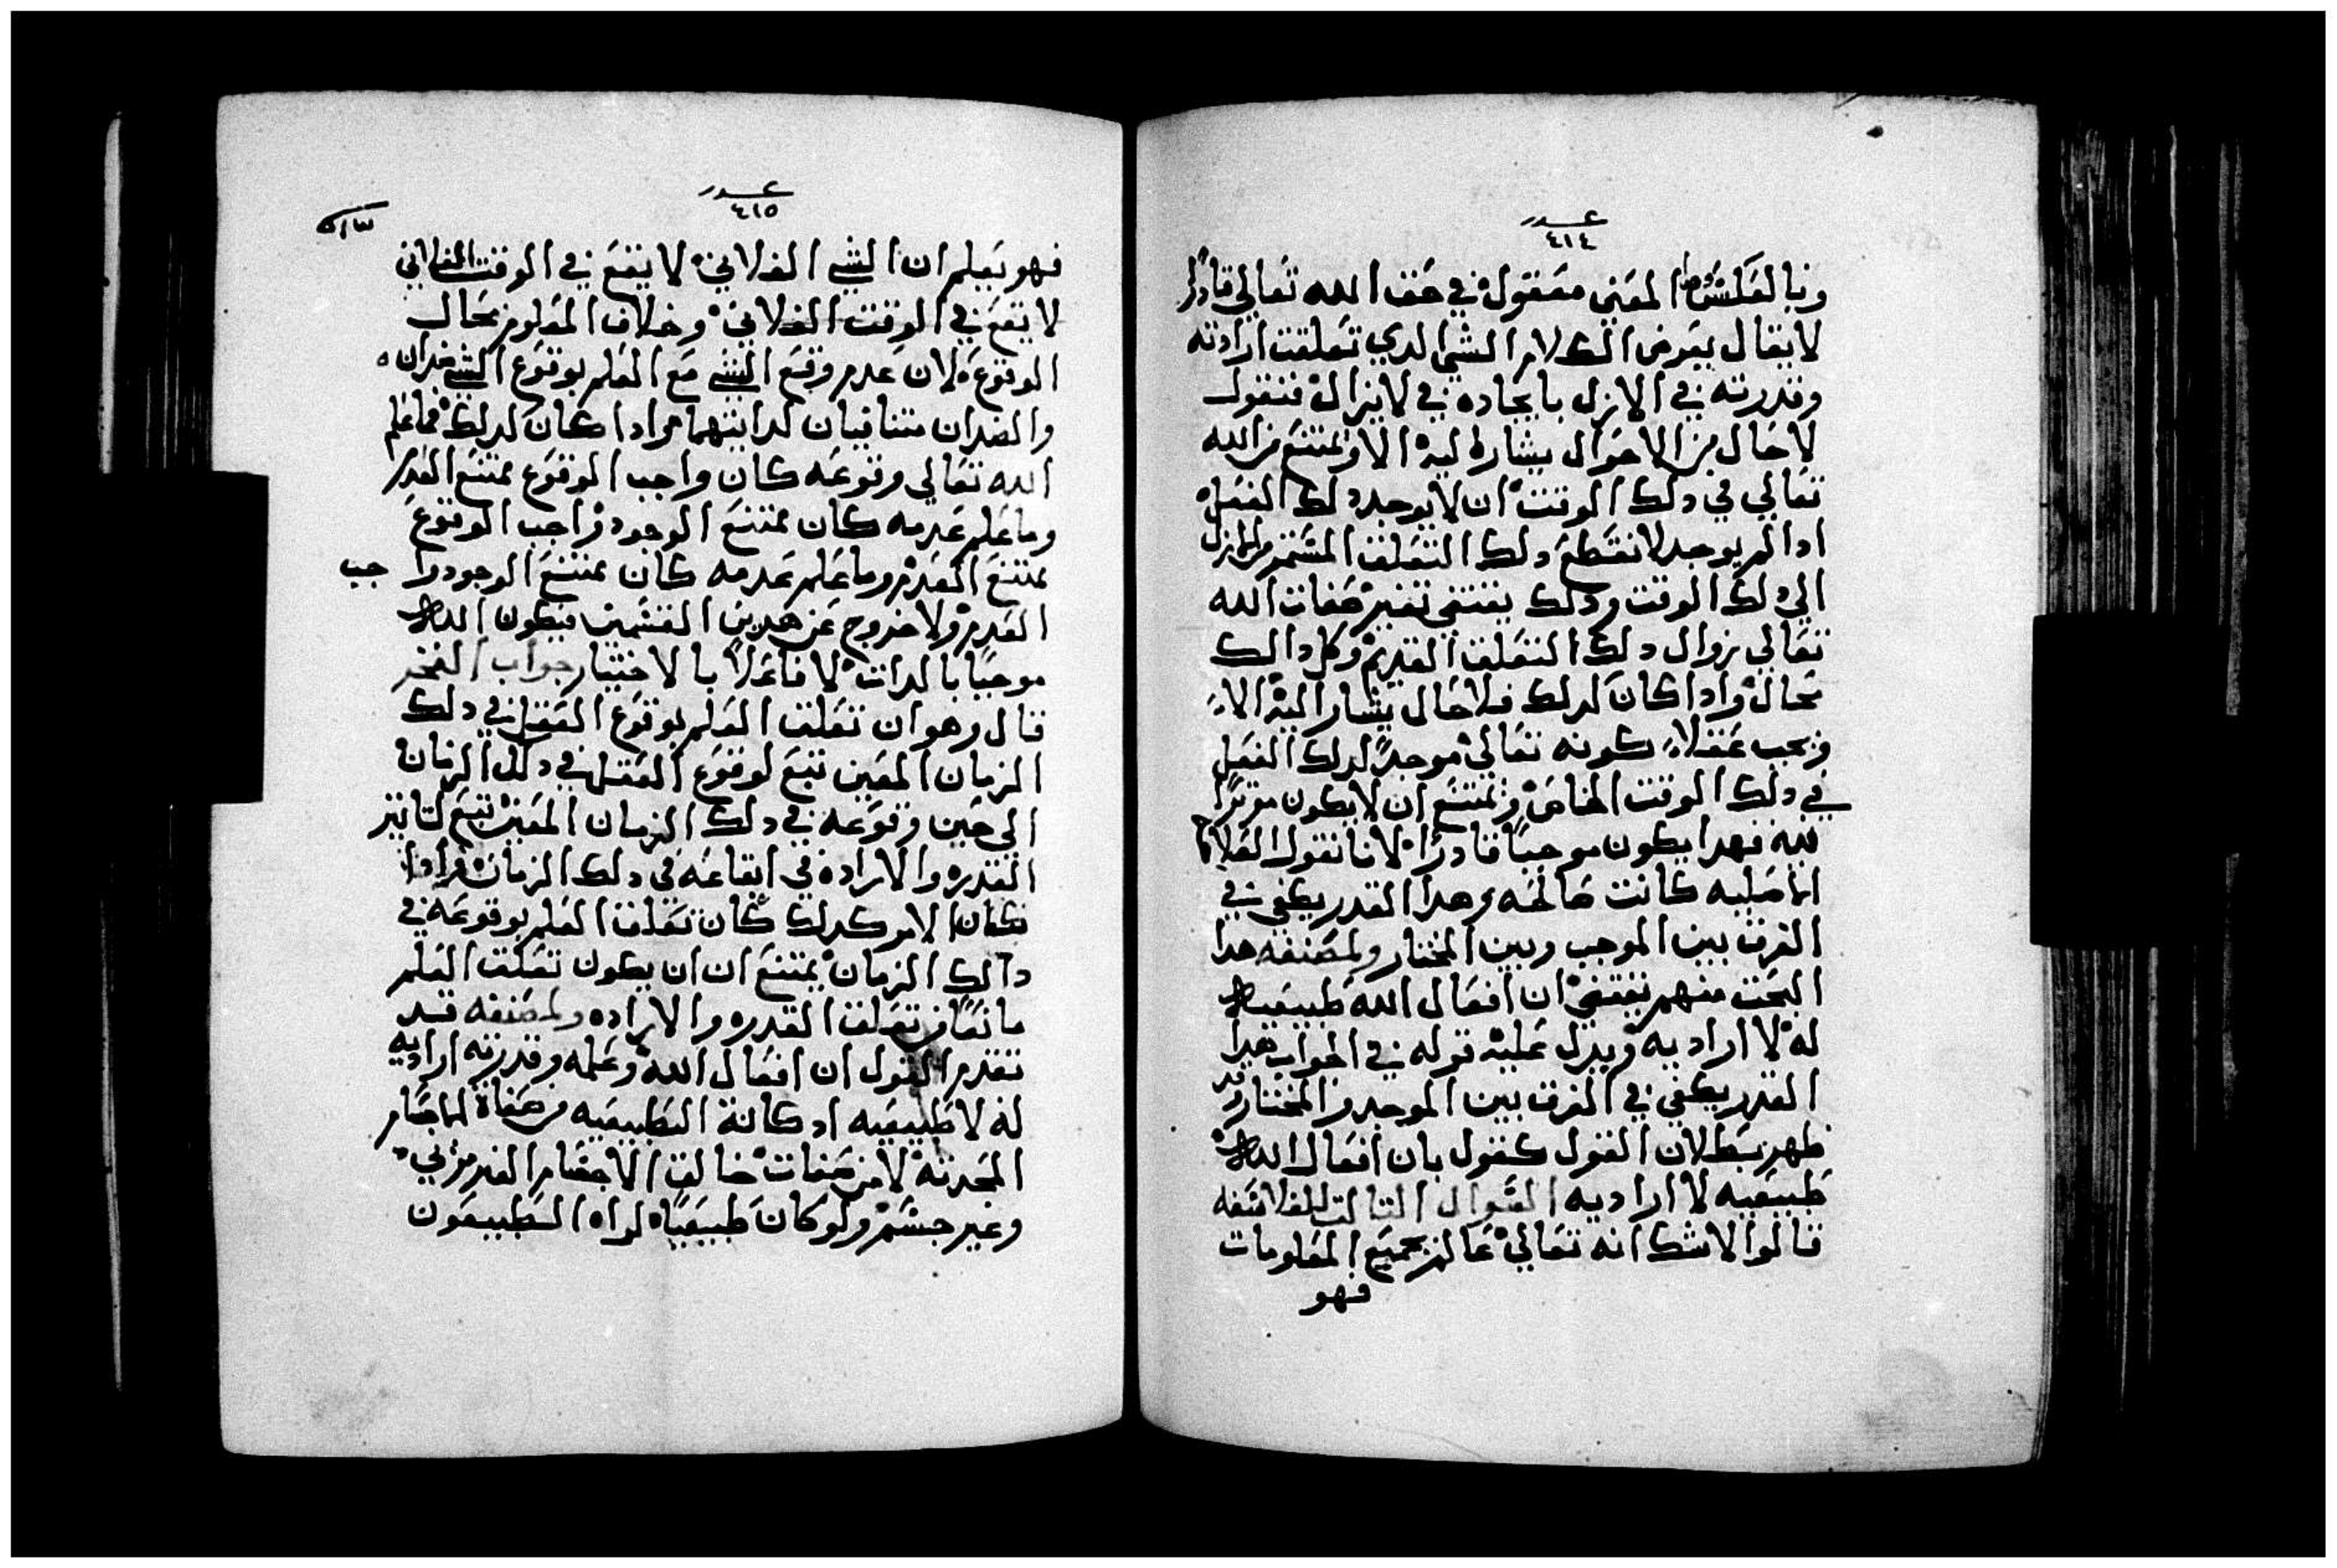 عدد
٤١٤
وبالعكس المعني معقول في حق الله تعالي قادرًا
لا يقال يعرض الكلام الشي الدي تعلقت ارادته
وقدرته في الازل بايجاده في لا يزال فنقول
لا حال من الاحوال يشار اليه الا ويمتنع من الله
تعالي في دلك الوقت ان لا يوجد دلك الفعل
ادا لم يوجد لانقطع دلك التعلق المستمر من الازل
الي دلك الوقت ودلك يقتضي تغير صفات الله
تعالي بزوال دلك التعلق القديم وكل دالك
محال وادا كان لدلك فلا حال يشار اليه الا
ويجب عقلاً كونه تعالي موجدًا لدلك الفعل
في دلك الوقت الخاص ويمتنع ان لا يكون موثرًا
فيه فهدا يكون موجبًا قادرًا لانا نقول العلا
الماصليه كانت صالحه وهدا القدر يكفي في
الفرق بين الموجب وبين المختار ولمصنفه هدا
البحت منهم يقتضي ان افعال الله طبيعيه
له لا اراديه ويدل عليه قوله في الجواب هدا
القدر يكفي في الفرق بين الموجد والمختار وقد
ظهر بطلان القول كقول بان افعال الله
طبيعيه لا اراديه القوال التالت للفلاسفه
قالوا لا شك انه تعالي عالم بجميع المعلومات
فهو
عدد
٤١٥
فهو يعلم ان الشي الفلاني لا يقع في الوقت الفلاني
لا يقع في الوقت الفلاني وخلاف المعلوم محال
الوقوع لان عدم وقع الشي مع العلم بوقوع الشي ضدان
والضدان متنافيان لداتيهما وادا كان لدلك فما علم
الله تعالي وقوعه كان واجب الوقوع ممتنع العدم
وما علم عدمه كان ممتنع الوجود واجب الوقوع
ممتنع العدم وما علم عدمه كان ممتنع الوجود واجب
العدم ولا خروج عن هدين القسمين فيكون الله
موجبًا بالدات لا فاعلاً بالاختيار جواب الفخر
قال وهو ان تعلق العلم بوقوع الفعل في دلك
الزمان المعين تبع لوقوع الفعل في دلك الزمان
الي حين وقوعه في دلك الزمان المعين تبع لتاتير
القدره والاراده في ايقاعه في دلك الزمان وادا
فكان الامر كدلك كان تعلق العلم بوقوعه في
دالك الزمان يمتنع ان ان يكون تعلق العلم
مانعًا من تعلق القدره والاراده ولمصنفه قد
تقدم القول ان افعال الله وعلمه وقدرته اراديه
له لا طبيعيه اد كانة الطبيعيه من صفاة الاجسام
المحدته لا من صفات خالق الاجسام الغير مري
وغير جسم ولو كان طبيعيًا لراه الطبيعون